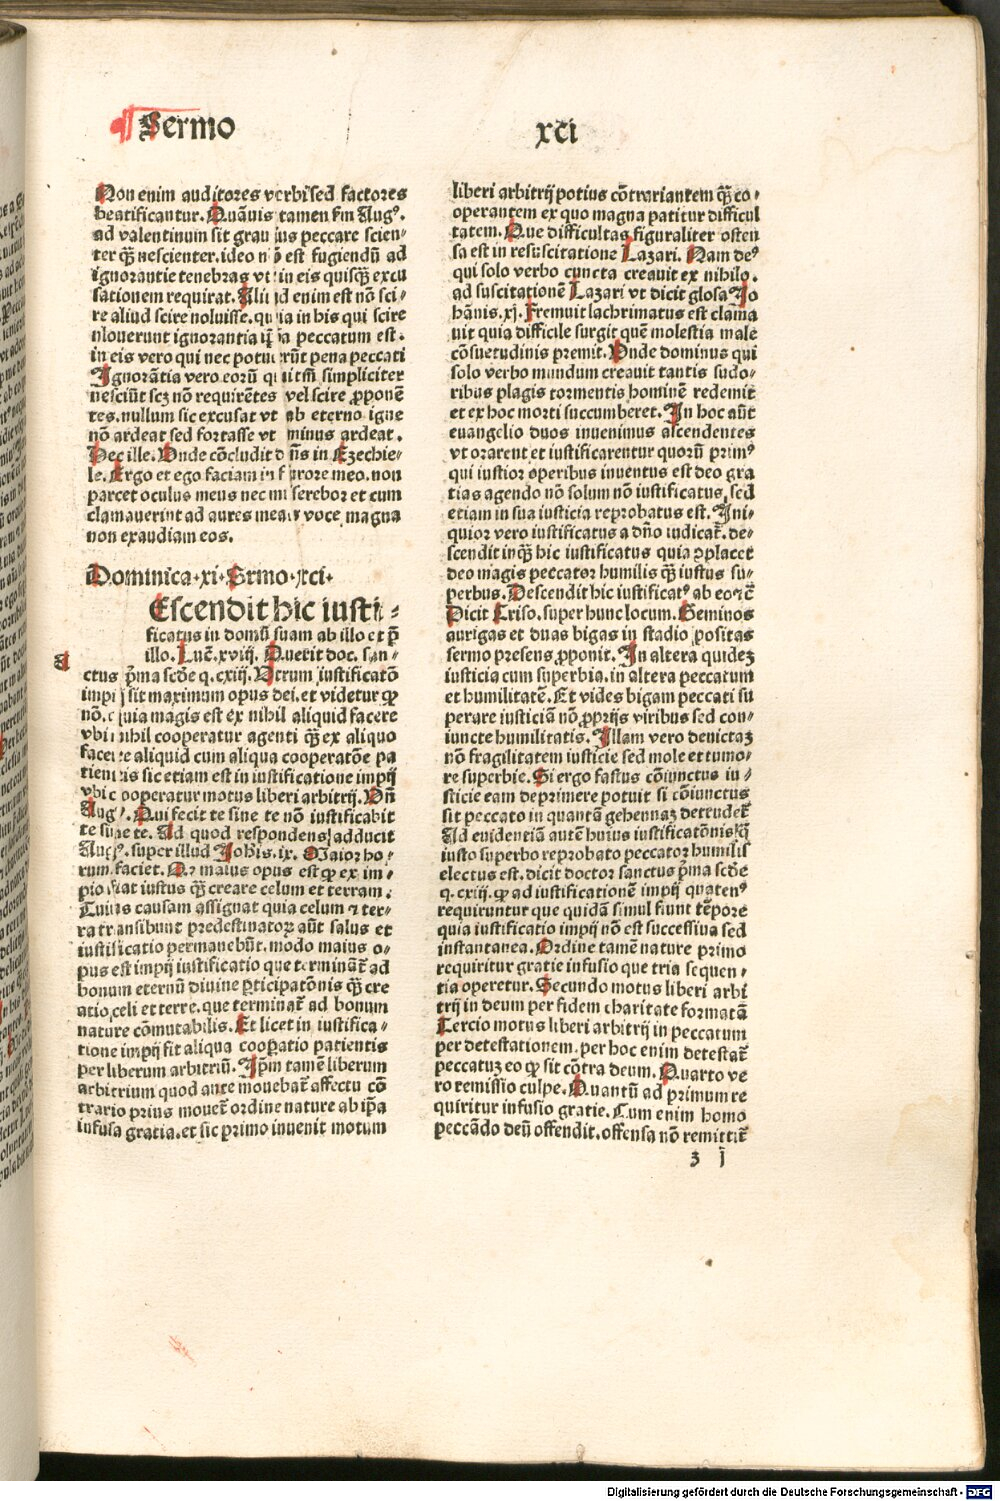 Sermo
xci
Non enim auditores verbi sed factores
beatificantur. Quāuis tamen ẜm Augꝰ.
ad valentinum sit grauius peccare scien⸗
ter qƷ̄ nescienter. ideo nō est fugiendū ad
ignorantie tenebras vt in eis quisqƷ̄ excu
sationem requirat. Aliud enim est nō sci⸗
re aliud scire noluisse. quia in his qui scire
nlouerunt ignorantia ip̄a peccatum est.
in eis vero qui nec potuerūt pena peccati
Ignorātia vero eorū qui tm̄ simpliciter
nesciūt scꝫ nō requirētes vel scire ꝓponē
tes. nullum sic excusat vt ab eterno igne
nō ardeat sed fortasse vt minus ardeat.
Hec ille. Unde cōcludit dn̄s in Ezechie⸗
le. Ergo et ego faciam in furore meo. non
parcet oculus meus nec miserebor et cum
clamauerint ad aures meas voce magna
non exaudiam eos.
Dominica xi. Srmo xci.
Escendit hic iusti⸗
ficatus in domū suam ab illo et p̄
illo. Luc̄. xviij. Querit doc. san⸗
a
ctus p̄ma scd̄e q. cxiij. Utrum iustificatō
impij sit maximum opus dei. et videtur ꝙ
nō. quia magis est ex nihil aliquid facere
vbi nihil cooperatur agenti qƷ̄ ex aliquo
facere aliquid cum aliqua cooperatōe pa
tientis sic etiam est in iustificatione impij
vbi cooperatur motus liberi arbitrij. Un̄
Augꝰ. Qui fecit te sine te nō iustificabit
te sine te. Ad quod respondens adducit
Augꝰ. super illud Johis. ix. Maior ho⸗
rum faciet. Qꝛ maius opus est ꝙ ex im⸗
pio fiat iustus qƷ̄ creare celum et terram.
Cuius causam assignat quia celum ⁊ ter⸗
ra transibunt predestinatoꝝ aūt salus et
iustificatio permanebūt. modo maius o⸗
pus est impij iustificatio que terminat̄ ad
bonum eternū diuine ꝑticipatōnis qƷ̄ cre
atio celi et terre. que terminat̄ ad bonum
nature cōmutabilis. Et licet in iustifica⸗
tione impij fit aliqua cooꝑatio patientis
per liberum arbitriū. Ip̄m tamē liberum
arbitrium quod ante mouebat̄ affectu cō
trario prius mouet̄ ordine nature ab ip̄a
infusa gratia. et sic primo inuenit motum
liberi arbitrij potius cōtrariantem qƷ̄ co⸗
operantem ex quo magna patitur difficul
tatem. Que difficultas figuraliter osten
sa est in resuscitatione Lazari. Nam deꝰ
qui solo verbo cuncta creauit ex nihilo.
ad suscitationē Lazari vt dicit glosa Jo
hānis. xj. Fremuit lachrimatus est clama
uit quia difficile surgit quē molestia male
cōsuetudinis premit. Unde dominus qui
solo verbo mundum creauit tantis sudo⸗
ribus plagis tormentis hominē redemit
et ex hoc morti succumberet. In hoc aūt
euangelio duos inuenimus ascendentes
vt orarent et iustificarentur quorū primꝰ
qui iustior operibus inuentus est deo gra
tias agendo nō solum nō iustificatus sed
etiam in sua iusticia reprobatus est. Ini⸗
quior vero iustificatus a dn̄o iudicat̄. de⸗
scendit inqƷ̄ hic iustificatus quia ꝯplacet
deo magis peccator humilis qƷ̄ iustus su⸗
perbus. Descendit hic iustificatꝰ ab eo ⁊c̄
Dicit Criso. super hunc locum. Geminos
aurigas et duas bigas in stadio positas
sermo presens ꝓponit. In altera quideꝫ
iusticia cum superbia. in altera peccatum
et humilitatē. Et vides bigam peccati su
perare iusticiā nō ꝓprijs viribus sed con⸗
iuncte humilitatis. Illam vero deuictaꝫ
nō fragilitatem iusticie sed mole et tumo⸗
re superbie. Si ergo fastus cōiunctus iu⸗
sticie eam deprimere potuit si cōiunctus
sit peccato in quantā gehennaꝫ detrudet̄
Ad euidentiā autē huius iustificatōnis qƷ̄
iusto superbo reprobato peccator humilis
electus est. dicit doctor sanctus p̄ma scd̄e
q. cxiij. ꝙ ad iustificationē impij quatenꝰ
requiruntur que quidā simul fiunt tēpore
quia iustificatio impij nō est successiua sed
instantanea. Ordine tamē nature primo
requiritur gratie infusio que tria sequen⸗
tia operetur. Secundo motus liberi arbi
trij in deum per fidem charitate formatā
Tercio motus liberi arbitrij in peccatum
per detestationem. per hoc enim detestat̄
peccatuꝫ eo ꝙ sit cōtra deum. Quarto ve
ro remissio culpe. Quantū ad primum re
quiritur infusio gratie. Cum enim homo
peccādo deū offendit. offensa nō remittit̄
ʒ j
Digitalisierung gefördert durch die Deutsche Forschungsgemeinschaft - DFG